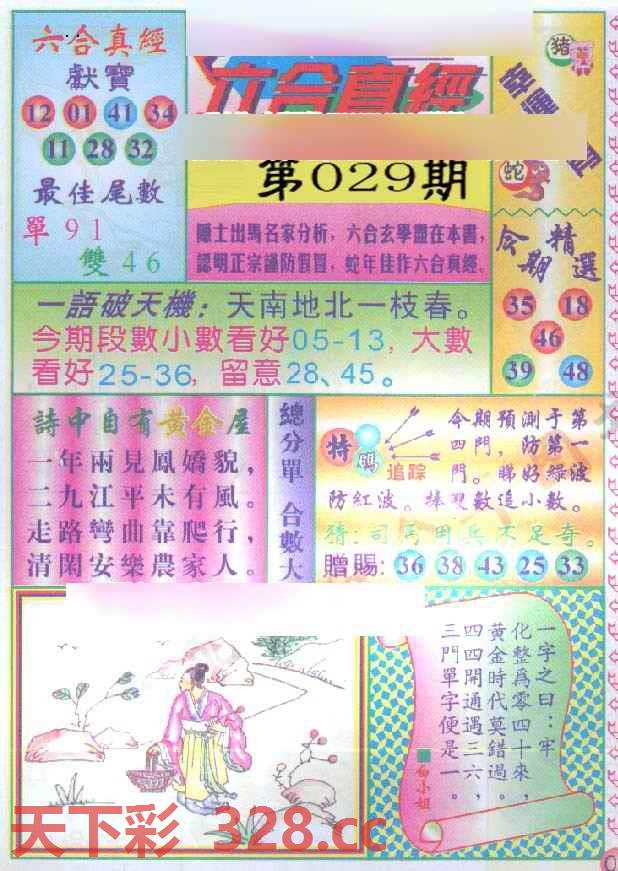 六合真經
獻寶
12 01 41 34
11 28 32
最佳尾數
單 9 1
雙 4 6
六合真經
第029期
隱士出馬名家分析，六合玄學盡在本書，
認明正宗謹防假冒，蛇年佳作六合真經。
豬
蛇
今期精選
35 18
46
39 48
一語破天機：天南地北一枝春。
今期段數小數看好05-13，大數
看好25-36，留意28、45。
詩中自有黃金屋
一年兩見鳳嬌貌，
二九江平未有風。
走路彎曲靠爬行，
清閑安樂農家人。
總分單 合數大
特碼
追踪
今期預測于第
四門，防第一
門。睇好綠波
防紅波。捧雙數追小數。
猜：司馬用兵不足奇。
贈賜：36 38 43 25 33
一字之曰：牢
化整為零四十來，
黃金時代莫錯過。
四四開通遇三六，
三門單字便是一。
白小姐
天下彩 328.cc